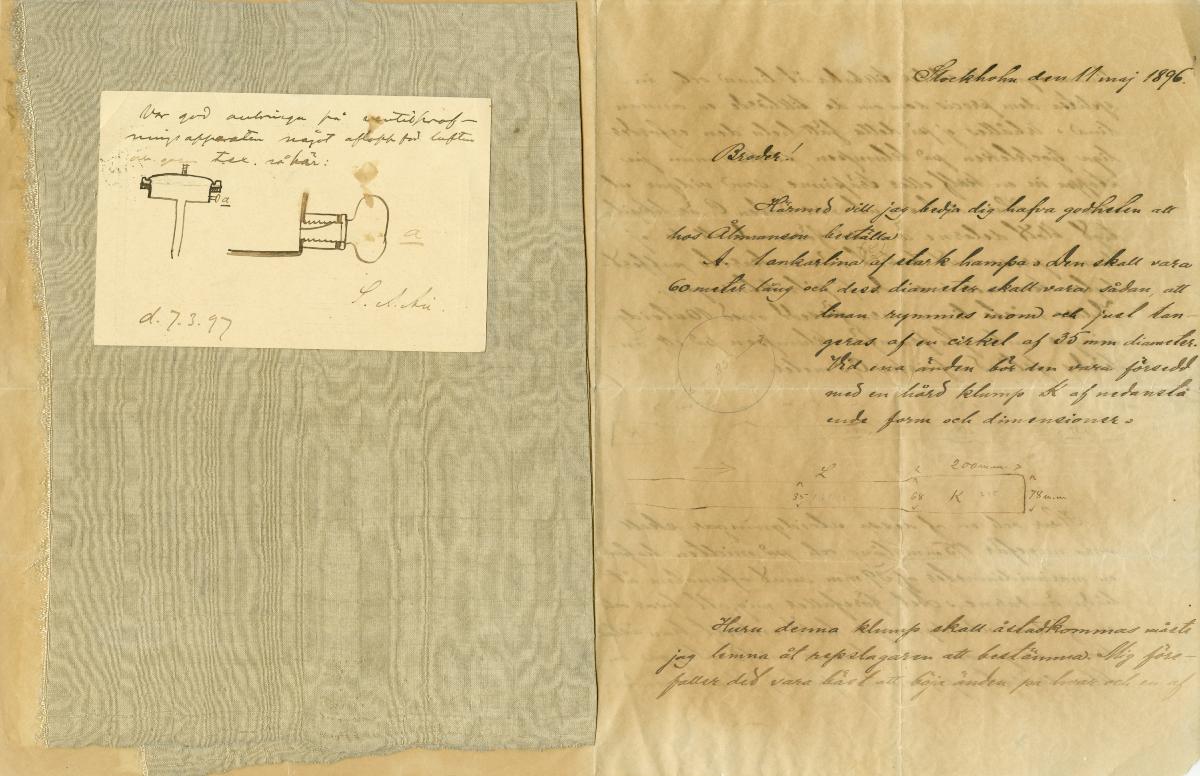 Var god anbringa på ventilprof-
ningsapparaten något aflopp för luften
t.ex. så här:
a
a
S. A. A
d. 7.3.97
Stockholm den 11 maj 1896.
Broder!
Härmed vill jag bedja dig hafva godheten att
hos Åtmanson beställa
A. Lankarlina af stark hampa. Den skall vara
60 meter lång och dess diameter skall vara sådan, att
linan rymmes inom och just tan-
geras af en cirkel af 35 mm diameter.
Vid ena änden bör den vara försedd
med en hård klump K af nedanstå
ende form och dimensioner.
35
L 200 m.m.
35 68 K 78 m.m
Huru denna klump skall åstadkommas måste
jag lemna åt repslagaren att bestämma. Mig före-
faller det vara bäst att böja änden på hvar och en af